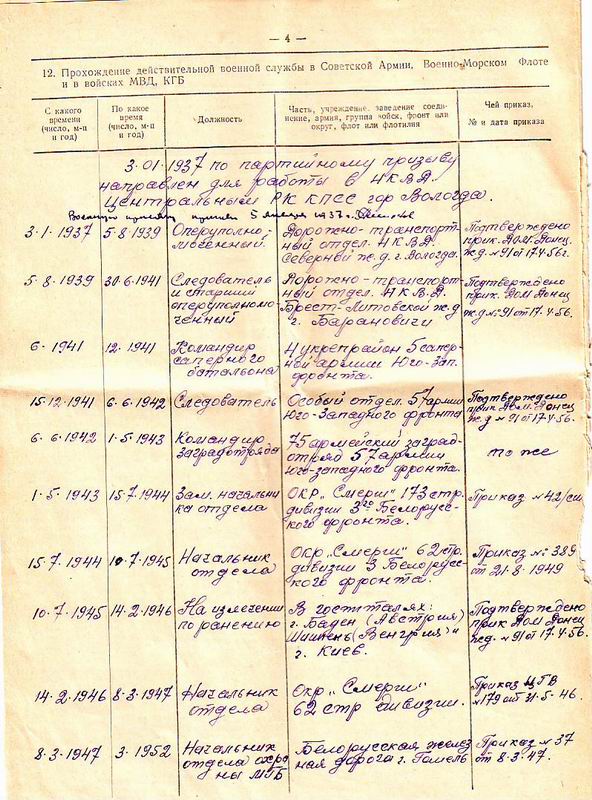 — 4 —
12. Прохождение действительной военной службы в Советской Армии, Военно-Морском Флоте
и в войсках МВД, КГБ
С какого
времени
(число, м-ц
и год)
По какое
время
(число, м-ц
и год)
Должность
Часть, учреждение, заведение соеди-
нение, армия, группа войск, фронт или
округ, флот или флотилия
Чей приказ,
№ и дата приказа
3.01.1937 по партийному призыву
направлен для работы в НКВД
Центральным РК КПСС гор Вологда.
Военную присягу принял 5 января 1937 г.
3.1.1937
5.8.1939
Оперуполно-
моченный.
Дорожно-транспорт-
ный отдел. НКВД.
Северной ж.д. г. Вологда.
Подтверждено
прик. Дом. Донец.
ж.д. №91 от 17.4.56г.
5.8.1939
30.6.1941
Следователь
и старший
оперуполномо-
ченный
Дорожно-транспорт-
ный отдел. НКВД.
Брест-Литовской ж.д
г. Барановичи
Подтверждено
прик. Дом Донец
ж.д №91 от 17.4.56.
6.1941
12.1941
Командир
саперного
батальона
4 укрепрайон 5 сапер-
ной армии Юго-Зап.
фронта.
15.12.1941
6.6.1942
Следователь
Особый отдел. 57 армии
Юго-Западного фронта
Подтверждено
прик. Дом. Донец
ж.д №91 от 17.4.56.
6.6.1942
1.5.1943
Командир
заградотряда
75 армейский заград-
отряд 57 армии
Юго-западного фронта.
то же
1.5.1943
15.7.1944
Зам. начальни
ка отдела
ОКР „Смерш" 173 стр.
дивизии 3го Белорусс-
кого фронта.
Приказ №42/см
15.7.1944
10.7.1945
Начальник
отдела
Окр „Смерш" 62 стр.
дивизии 3 Белорусс-
кого фронта.
Приказ № 389
от 21.8.1949
10.7.1945
14.2.1946
На излечении
по ранению
В госпиталях:
г. Баден (Австрия)
(Венгрия) и
г. Киев.
Подтверждено
прик Дом Донец
ж.д. №91 от 17.4.56.
14.2.1946
8.3.1947
Начальник
отдела
Окр „Смерш"
62 стр дивизии.
Приказ ЦГВ
№179 от 31.5.46.
8.3.1947
3.1952
Начальник
отдела охра
ны МГБ
Белорусская желез
ная дорога г. Гомель
Приказ №37
от 8.3.47.